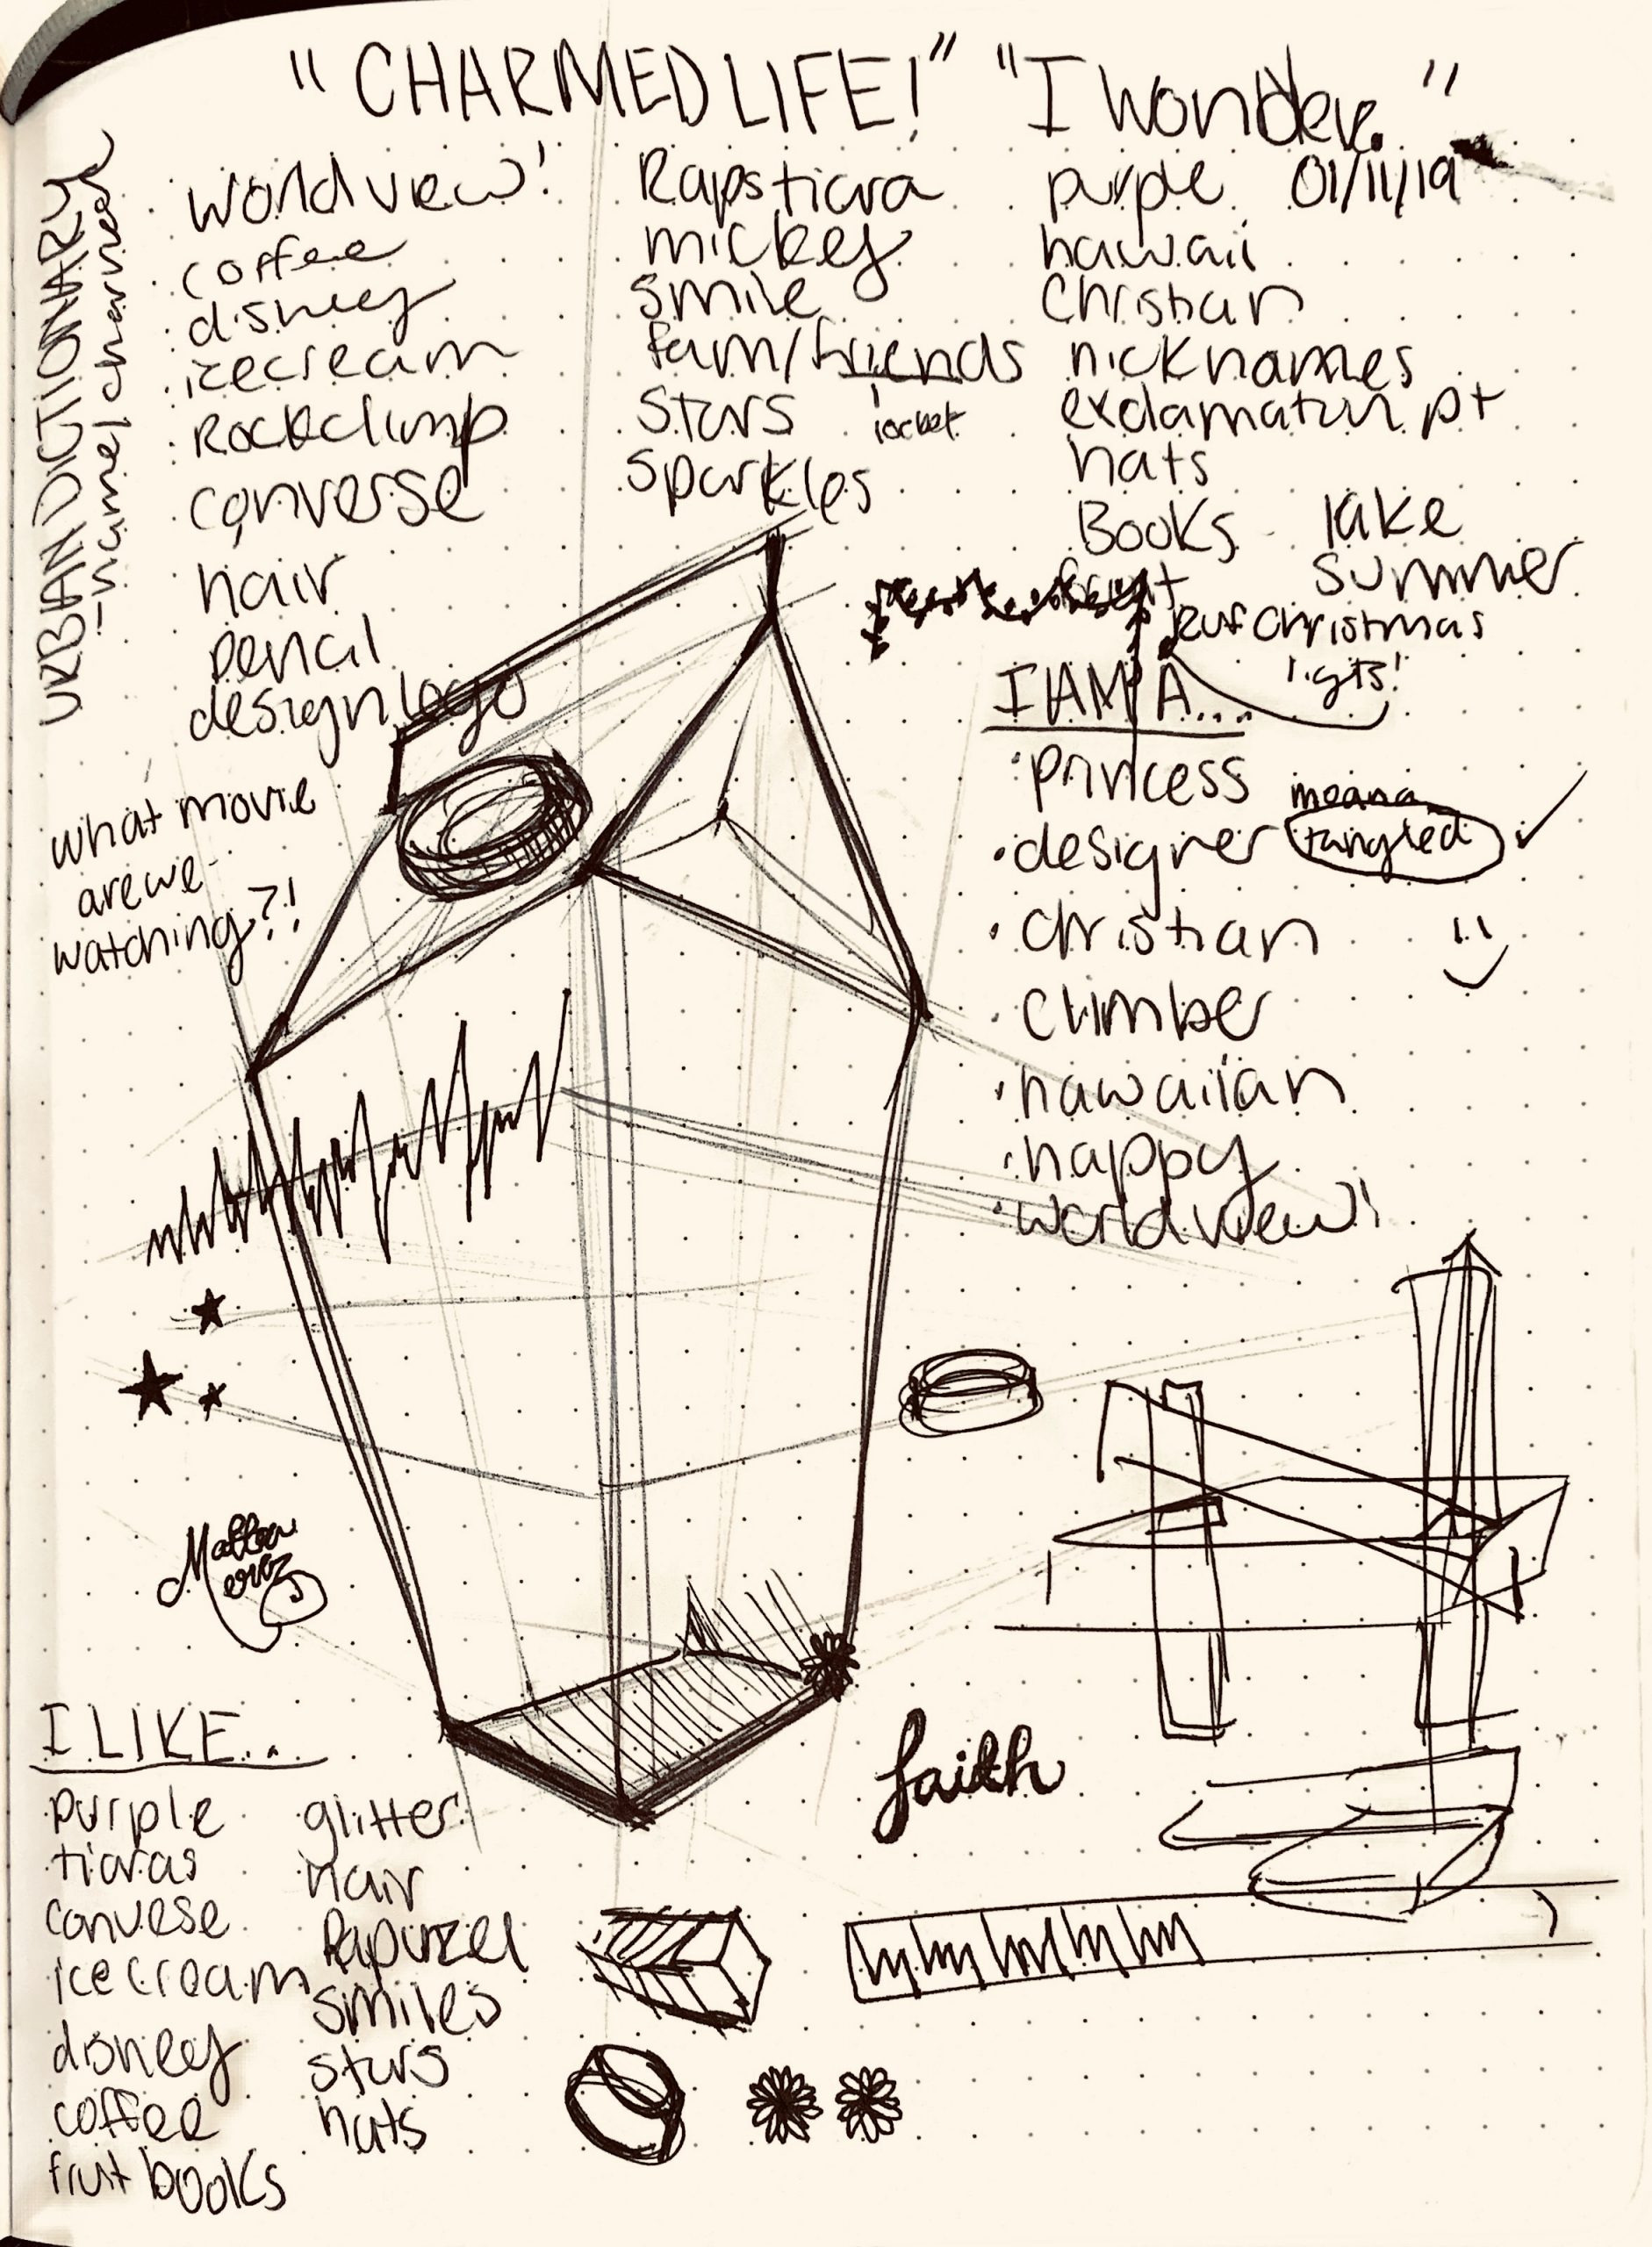 "CHARMED LIFE!" "I wonder."
01/11/19
URBAN DICTIONARY
- name/charmed
world view!
coffee
disney
icecream
Rockclimb
converse
hair
pencil
design logo
Raps tiara
mickey
smile
fam/friends
locket
stars
sparkles
purple
hawaii
Christian
nicknames
exclamation pt
hats
Books
lake
summer
Christmas
ligts!
what movie
are we
watching?!
I AM A...
• princess
• designer
moana
tangled
• christian
• climber
• hawaiian
• happy
• world view!
faith
I LIKE...
purple
tiaras
convese
ice cream
disney
coffee
fruit books
glitter
hair
Rapunzel
smiles
stars
hats